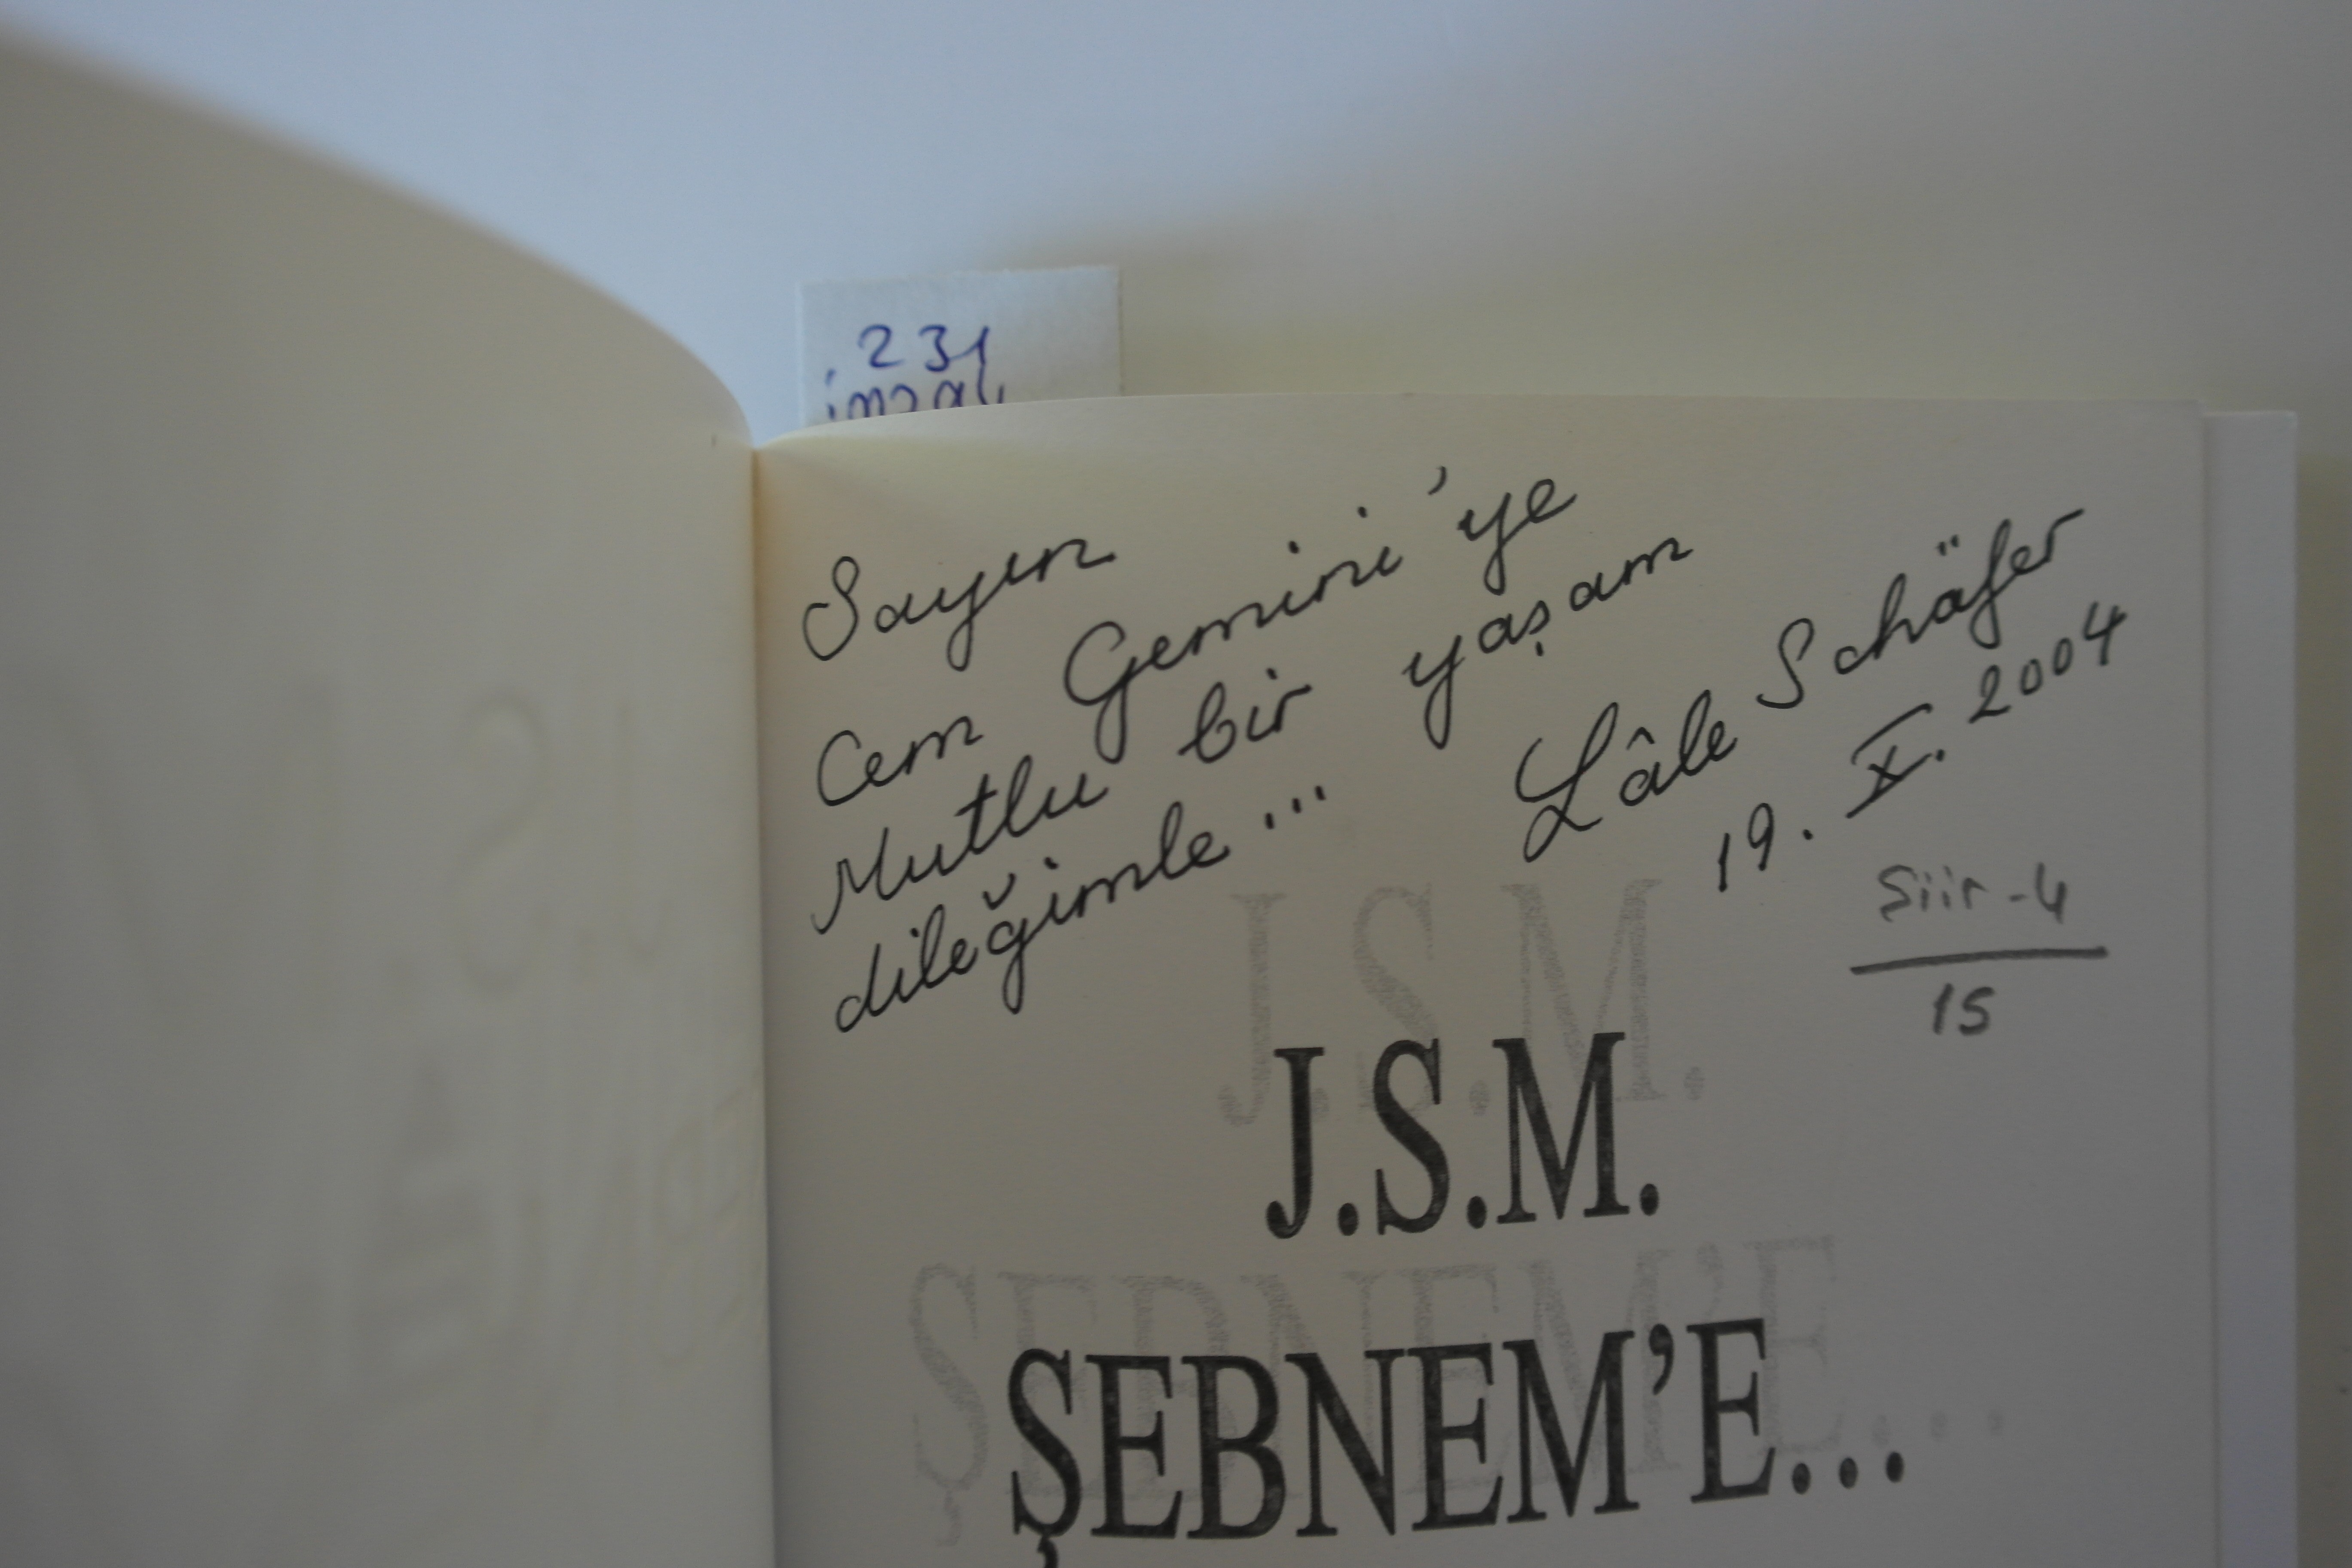 231
imzalı
Sayın
Cem Gemini'ye
Mutlu bir yaşam
dileğimle...
Lâle Schäfer
19. X. 2004
Şiir-4
15
J.S.M.
ŞEBNEM'E...